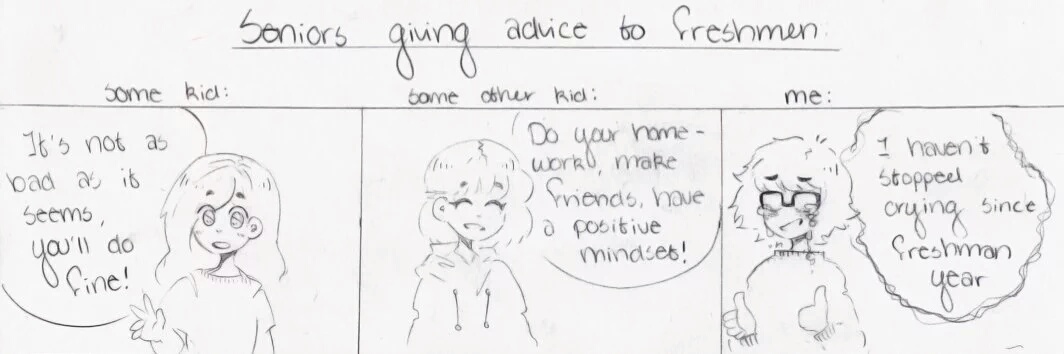 Seniors giving advice to freshmen:
some kid:
some other kid:
me:
It's not as
bad as it
seems,
you'll do
fine!
Do your home-
work, make
friends, have
a positive
mindset!
I haven't
stopped
crying since
freshman
year